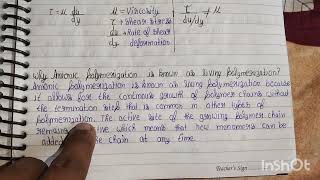 τ = μ du/dy
μ = Viscosity
τ = Shear stress
du/dy = Rate of shear deformation
τ / du/dy = μ
Why Anionic Polymerization is known as living Polymerization?
Anionic Polymerization is known as living Polymerization because
it allows for the continuous growth of polymer chains without
the termination step that is common in other types of
Polymerization. The active site of the growing polymer chain
remains active which means that new monomers can be
added the chain at any time.
Teacher's Sign
InShOt